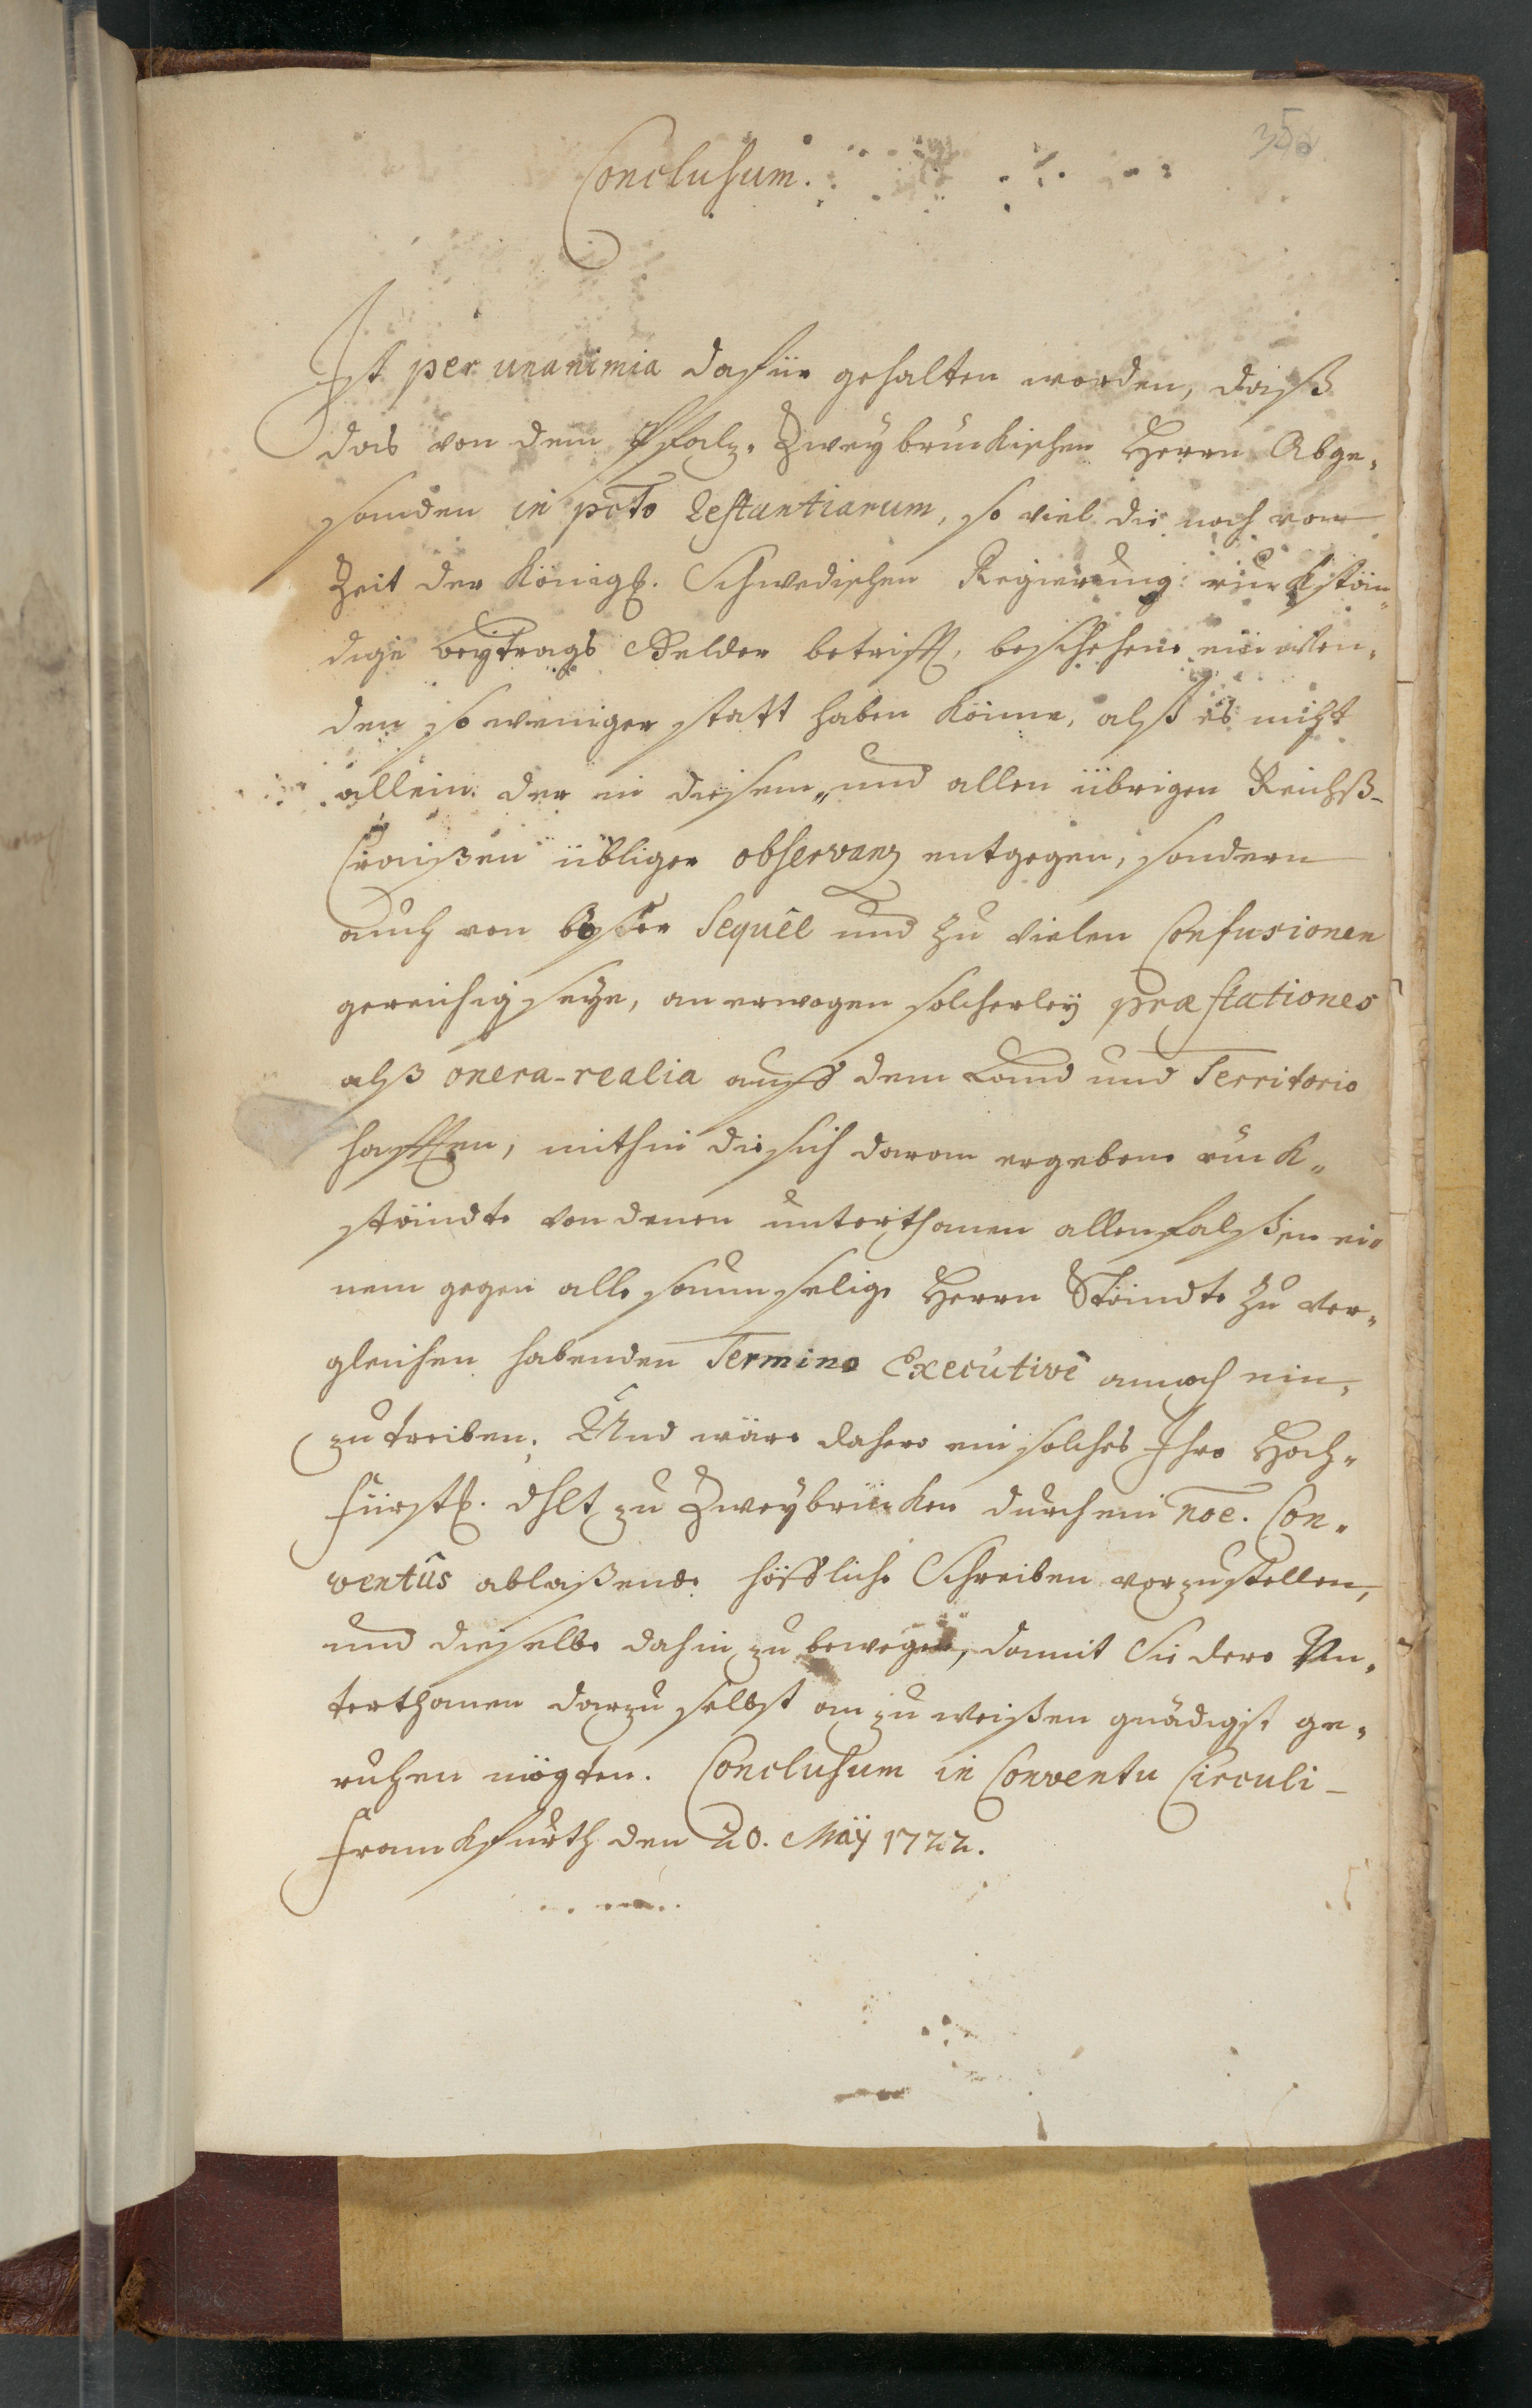 356
Conclusum.
Ist per unanimia dafür gehalten worden, daß
das von dem Pfalz-Zweybruckischen Herrn Abge-
sanden in pcto Restantiarum, so viel die noch von
Zeit der Königl. Schwedischen Regierung rückstän-
dige beytrags Gelder betrifft, beschehene einwen-
den so weniger statt haben könne, alß es nicht
allein der in diesem- und allen übrigen Reichß-
Craißen übliger observanz entgegen, sondern
auch von böser Sequel und zu vielen Confusionen
gereichig seye, an erwogen solcherley præstationes
alß onera-realia auff dem Land und Territorio
hafften, mithin die sich daran ergebene rück-
ständte von denen unterthanen allenfalß in ei-
nem gegen alle saumselige Herrn Ständte zu ver-
gleichen habenden Termino Executivè annoch ein-
zutreiben. Und wäre dahero ein solches Ihro Hoch-
fürstl. dhlt zu Zweybrücken durch ein noe. Con-
ventûs ablaßende höffliche Schreiben vorzustellen,
und dieselbe dahin zu bewegen, damit Sie dero Un-
terthanen darzu selbst an zu weißen gnädigst ge-
ruhen mögten. Conclusum in Conventu Circuli-
Franckfurth den 20. Maÿ 1722.